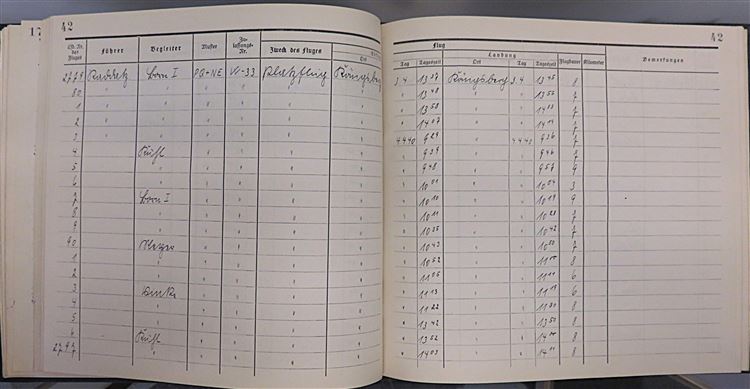 17
42
42
Lfd. Nr. des Fluges Führer Begleiter Muster Zulassungs-Nr. Zweck des Fluges Ort Flug Landung Tag Tageszeit Ort Tag Tageszeit Flugdauer Kilometer Bemerkungen
2779 Born I PQ+NE W-33 Platzflug Königsberg 3.4 13 37 Königsberg 3.4 13 45 8
80 " " " " " " " 13 48 " " 13 56
1 " " " " " " " 13 58 " "
2 " " " " " " " 14 07 " " 14 14 7
3 " " " " " " 4.4.40 9 29 " 4.4.40 9 36 7
4 " " " " " " 9 39 " " 9 46 7
5 " " " " " " " 9 48 " " 9 57 9
6 " " " " " " " 10 01 " " 10 04 3
7 " Born I " " " " " 10 10 " " 10 19 9
8 " " " " " " " " " 7
9 " " " " " " " 10 35 " " 10 42 7
90 " " " " " " 10 43 " " 10 50 7
1 " " " " " " " 10 52 " " 11 00 8
2 " " " " " " " 11 05 " " 11 11 6
3 " " " " " " 11 13 " " 11 19 6
4 " " " " " " " 11 22 " " 11 30 8
5 " " " " " " " 13 42 " " 13 50 8
6 " " " " " " 13 52 " " 14 00 8
2797 " " " " " " " 14 03 " " 14 11 8